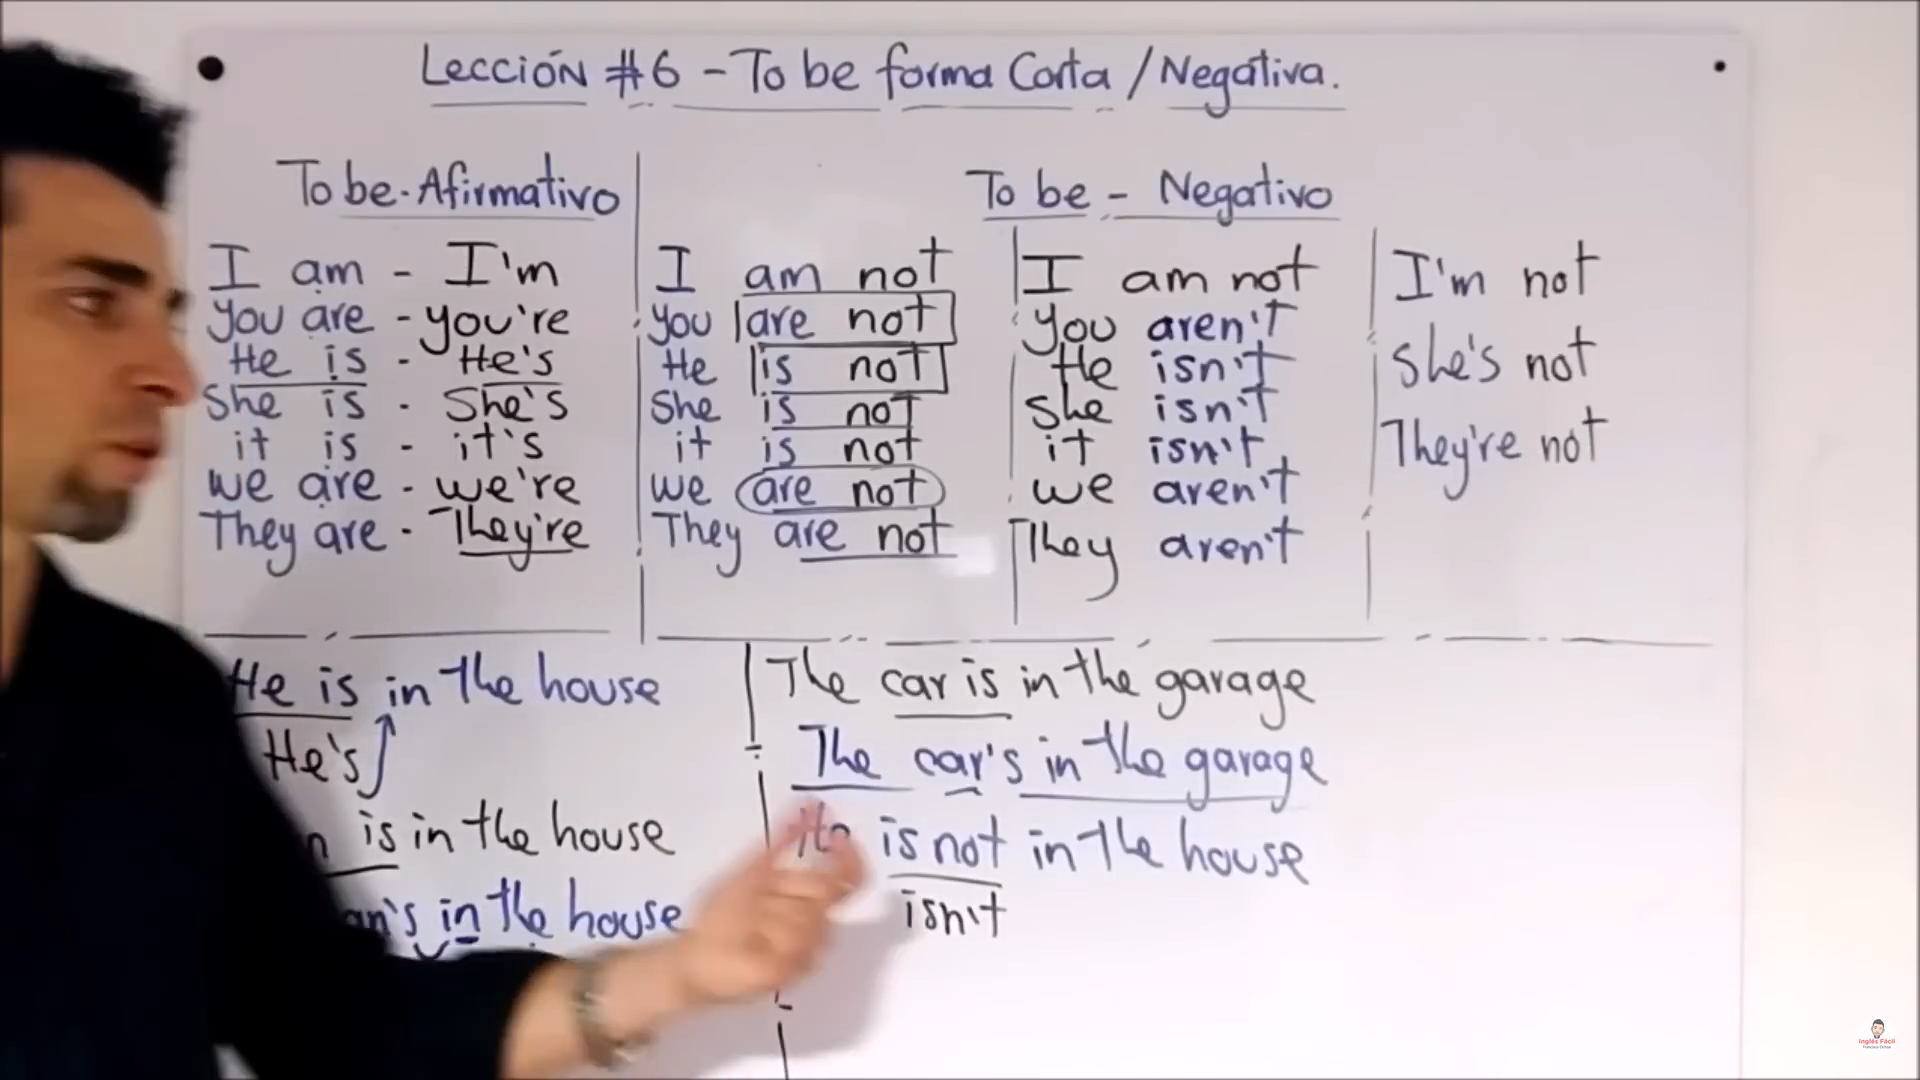 Lección #6 - To be forma Corta / Negativa.
To be - Afirmativo
I am - I'm
you are - you're
He is - He's
She is - She's
it is - it's
we are - we're
They are - They're
To be - Negativo
I am not
you are not
He is not
She is not
it is not
we are not
They are not
I am not
you aren't
He isn't
she isn't
it isn't
we aren't
They aren't
I'm not
She's not
They're not
He is in the house
He's
is in the house
in the house
The car is in the garage
The car's in the garage
He is not in the house
isn't
Inglés Fácil